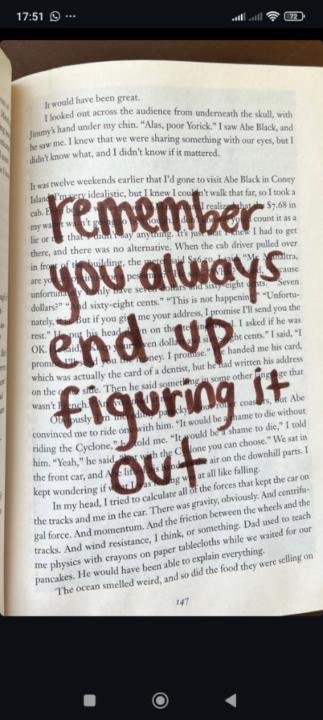 17:51
72
It would have been great.
I looked out across the audience from underneath the skull, with
Jimmy's hand under my chin. "Alas, poor Yorick." I saw Abe Black, and
he saw me. I knew that we were sharing something with our eyes, but I
didn't know what, and I didn't know if it mattered.
It was twelve weekends earlier that I'd gone to visit Abe Black in Coney
Island. I'm very idealistic, but I knew I couldn't walk that far, so I took a
cab.
remember
$7.68 in
my
count it as a
lie or
that
anything. It's
I had to get
there, and there was no alternative. When the cab driver pulled over
you always
in front
building, the
are you
unfortunately
only have seven dollars and sixty-eight cents."
"Seven
dollars?" "And sixty-eight cents." "This is not happening." "Unfortu-
nately,
But if you give me your address, I promise I'll send you the
end up
rest."
his head
on the
I asked if he was
OK.
cents." I said, "I
promise
money. I promise." He handed me his card,
which was actually the card of a dentist, but he had written his address
on the other side. Then he said something in some other language that
wasn't French.
figuring it
Obviously
roller coasters, but Abe
convinced me to ride one with him. "It would be a shame to die without
riding the Cyclone," he told me. "It would be a shame to die," I told
him. "Yeah," he said,
with the Cyclone you can choose." We sat in
out
the front car, and
air on the downhill parts. I
kept wondering if what I was feeling was at all like falling.
In my head, I tried to calculate all of the forces that kept the car on
the tracks and me in the car. There was gravity, obviously. And centrifu-
gal force. And momentum. And the friction between the wheels and the
tracks. And wind resistance, I think, or something. Dad used to teach
me physics with crayons on paper tablecloths while we waited for our
pancakes. He would have been able to explain everything.
The ocean smelled weird, and so did the food they were selling on
147